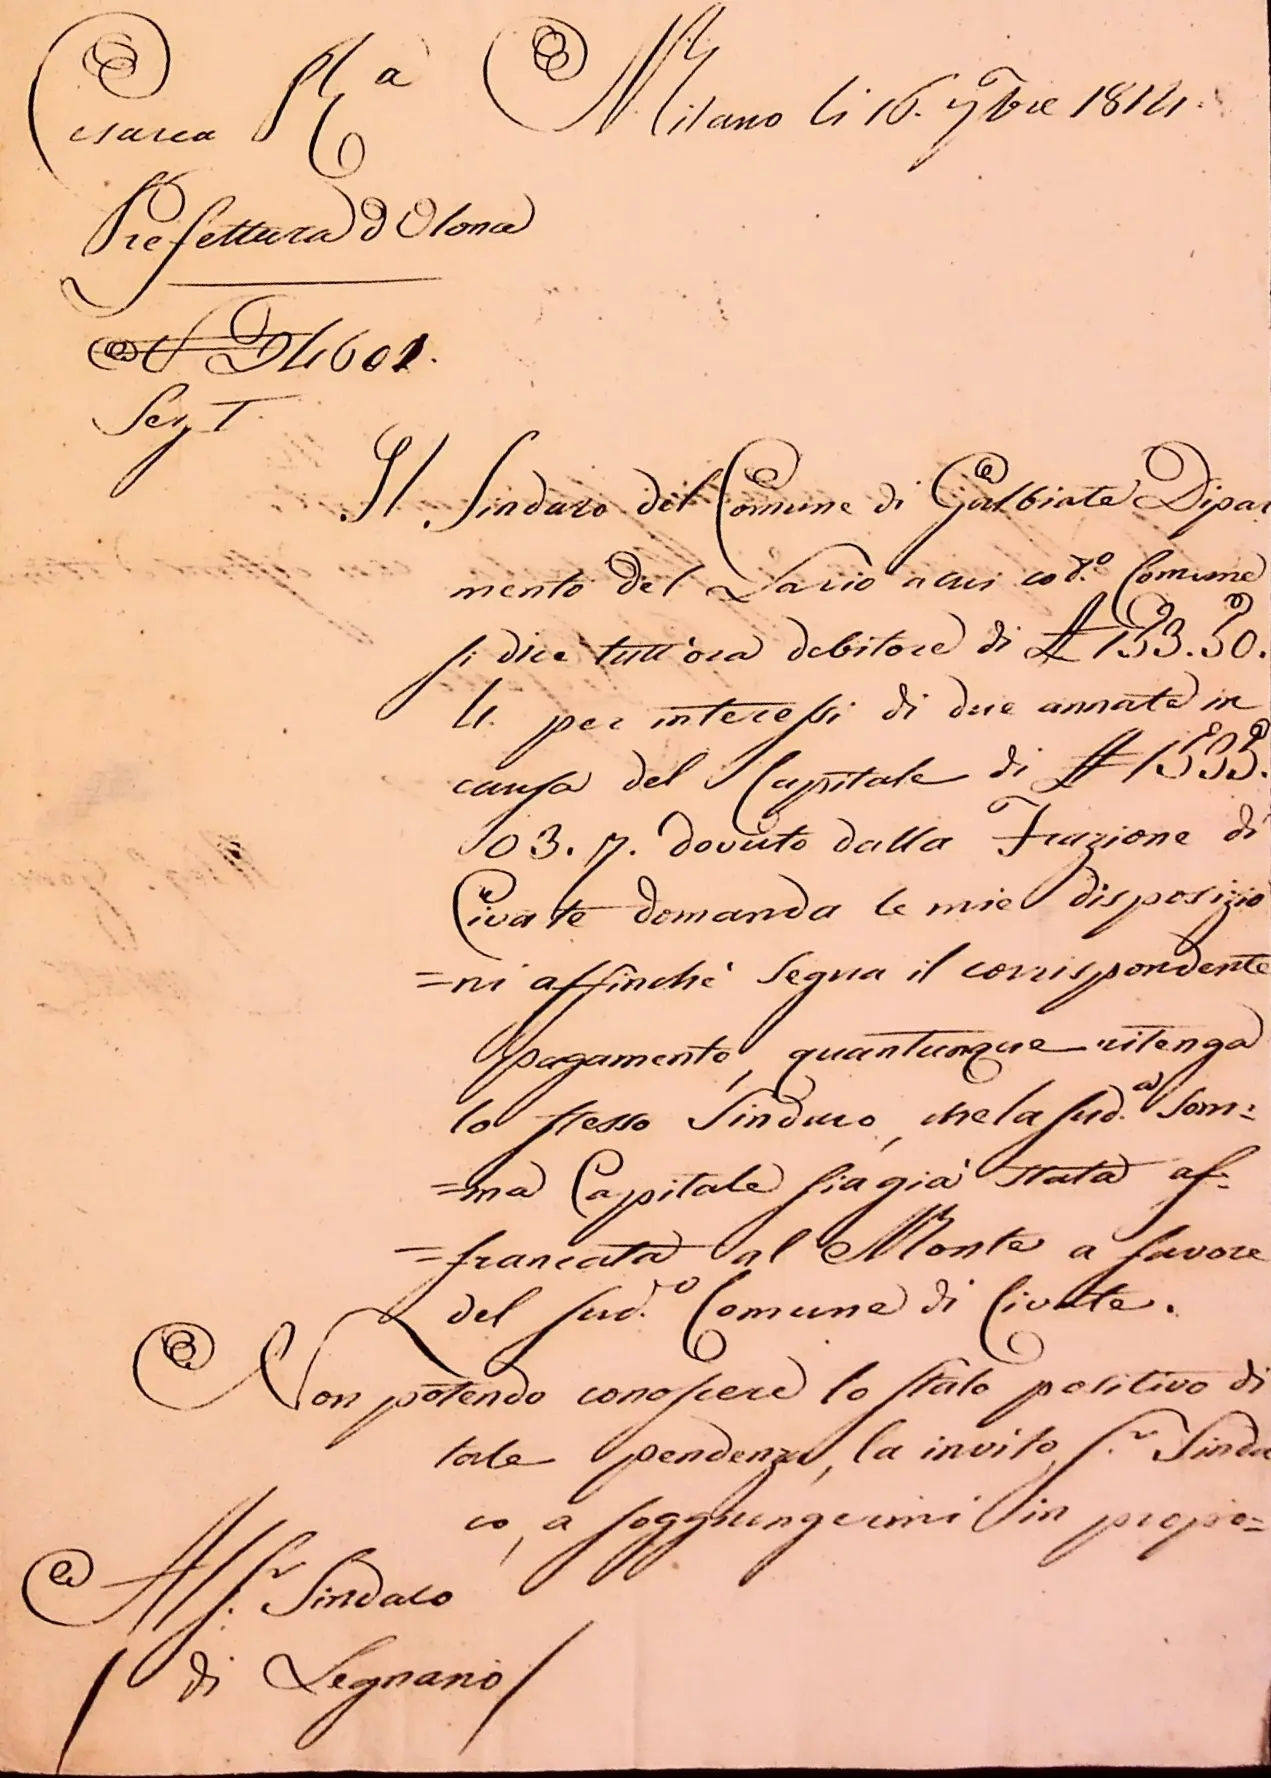 Cesarea R.a
Milano li 16. 9bre 1814.
Prefettura d'Olona
24601.
Sez I.
Il Sindaco del Comune di Galbiate Dipar
mento del Lario a cui cod.o Comune
si dice tutt'ora debitore di £ 153.30.
4. per interessi di due annate in
causa del Capitale di £ 1533.
03.7. dovuto dalla Frazione di
Civate domanda le mie disposizio
=ni affinchè segua il corrispondente
pagamento, quantunque ritenga
lo stesso Sindaco, che la sud.a Som=
=ma Capitale sia già stata af=
=francata al Monte a favore
del sud.o Comune di Civate.
Non potendo conoscere lo stato positivo di
tale pendenza, la invito, S.r Sinda
co, a soggiungermi in propo=
Al S.r Sindaco
di Legnano